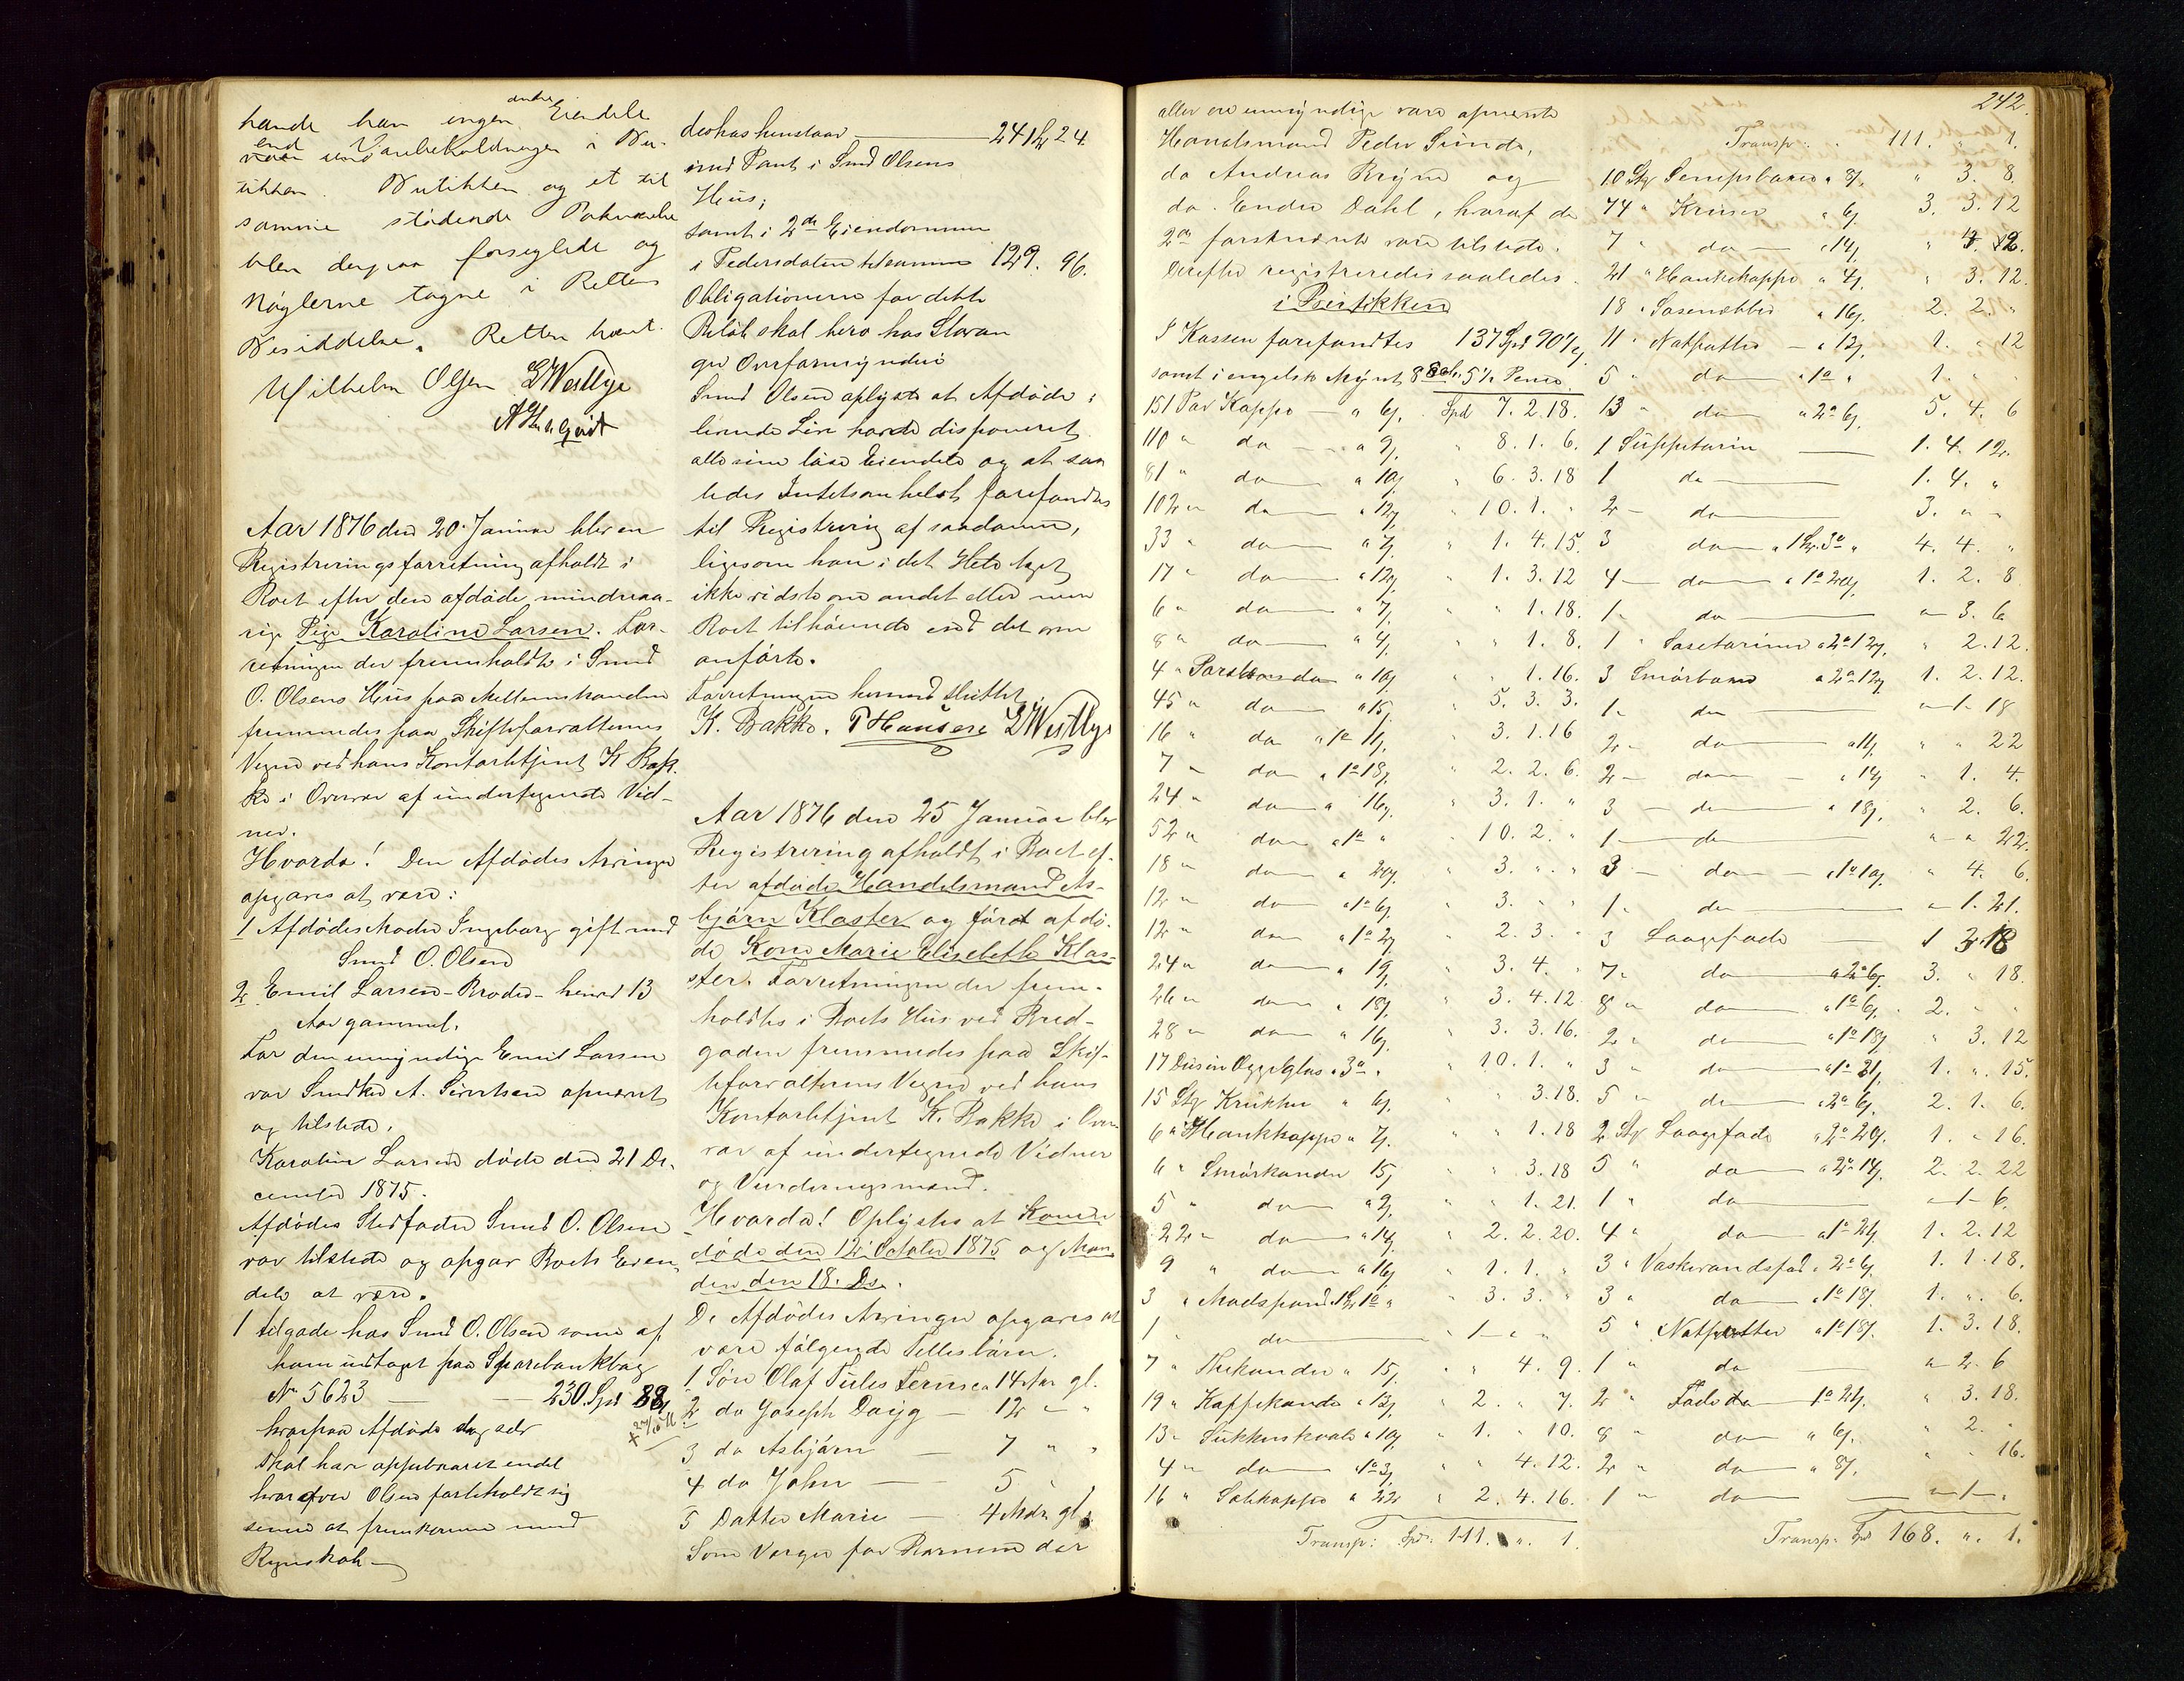 hande han ingen andre Eiendele
end Varebeholdningen i Bu-
tikken. Butikken og et til
samme stödende Pakværelse
blev derpaa forseglede og
Nøglerne tagne i Rettens
Besiddelse. Retten hævt.
Wilhelm Olsen LWestlye
Aar 1876 den 20. Januar blev en
Registreringsforretning afholdt i
Boet efter den afdøde mindreaa-
rige Pige Karoline Larsen. For-
retningen der fremholdtes i Smed
O. Olsens Hus paa
fremmedes paa Skifteforvalterens
Vegne ved hans Kontorbetjent K Bak-
ke i Overvær af undertegnede Vid-
ner.
Hvorda! Den Afdødes Arvinger
opgaves at være:
1 Afdødes Moder Ingeborg gift med
Smed O. Olsen
2 Emil Larsen - Broder - henved 13
Aar gammel.
For den umyndige Emil Larsen
var Smed A. Sivertsen opnævnt
og tilstede.
Karoline Larsen døde den 21 De-
cember 1875.
Afdødes Stedfader Smed O. Olsen
var tilstede og opgav Boets Eien-
dele at være.
1 tilgode hos Smed O. Olsen som af
ham udtaget paa Sparebankbog
No 5623 — 230 Spd 88
hvorpaa Afdøde dog selv
skal have oppebaaret endel
hvorfor Olsen forbeholdt sig
senere at fremkomme med
Regnskab
derhos henstaar — 241 24
mod Pant i Smed Olsens
Hus;
samt i 2de Eiendomme
i Pedersgaden tilsammen 129. 96.
Obligationerne for dette
Beløb skal bero hos Stavan
ger Overformynderi
Smed Olsen oplyste at Afdøde i
levende Live havde disponeret
alle sine løse Eiendele og at saa
ledes Intetsomhelst forefandtes
til Registrering af saadanne,
ligesom han i det Hele taget
ikke vidste om andet eller mere
Boet tilhørende end det som
anført.
Forretningen hermed sluttet
K. Bakke. T Hansen LWestlye
Aar 1876 den 25 Januar blev
Registrering afholdt i Boet ef-
ter afdøde Handelsmand As-
bjørn Kloster og først afdö-
de Kone Marie Elisebeth Klo-
ster. Forretningen der frem-
holdtes i Boets Hus ved Bred-
gaden fremmedes paa Skif-
teforvalterens Vegne ved hans
Kontorbetjent K. Bakke i Over-
vær af undertegnede Vidner
og Vurderingsmænd.
Hvorda! Oplystes at Konen
døde den 12 October 1875 og Man
den den 18. Ds.
De Afdødes Arvinger opgaves at
være følgende Fellesbørn.
1 Søn Olaf Tules Ternsen 14 Aar gl.
2 do Joseph — 12 " "
3 do Asbjørn — 7 " "
4 do John — 5 "
5 Datter Marie — 4 Mdr gl.
Som Verger for Børnene der
242.
alle ere umyndige vare opnævnte
Handelsmand Peder Sunde,
do Andreas Bryne og
do. Endre Dahl, hvoraf de
2de førstnævnte vare tilstede.
Derefter registreredes saaledes.
i Butikken
I Kassen forefandtes 137 Spd 90
samt i engelsk Mynt 8 5½ Pence.
151 Par Koppe — a 6 Spd 7. 2. 18.
110 " do — a 9 " 8. 1. 6.
81 " do a 10 " 6. 3. 18
102 " do a 12 " 10. 1. "
33 " do a 7 " 1. 4. 15.
17 " do a 12 " 1. 3. 12
6 " do a 7 " " 1. 18.
8 " do a 4 " " 1. 8.
4 " do a 10 " " 1. 16.
45 " do a 15 5. 3. 3.
16 " do a 1 11 " 3. 1. 16
7 " do a 1 18 " 2. 2. 6.
24 " do a 16 " 3. 1. "
52 " do a 1 " " 10. 2. "
18 " do a 20 " 3. " "
12 " do a 1 6 " 3. " "
12 " do a 1 2 " 2. 3. "
24 " do a 19 " 3. 4. "
26 " do a 18 " 3. 4. 12.
28 " do a 16 " 3. 3. 16.
17 Dusin Æggeglas a 3 " " 10. 1. "
15 Stk Krukker a 6 " " 3. 18.
6 " Hankkoppe a 7 " " 1. 18
6 " Smørkander 15 " " 3. 18
5 " do a 9 " " 1. 21.
22 " do a 14 " 2. 2. 20.
9 " do a 16 " 1. 1. "
3 " Madspand 3. 3. "
1 " do — " 1 — " "
7 " Thekander a 15 " " 4. 9.
19 " Kaffekande a 13 " 2. " 7.
13 " Sukkerskaale a 10 " 1. " 10.
4 " do a 1 3 " " 4. 12.
16 " a 22 " 2. 4. 16.
Transp: Spd. 111. " 1.
Transp: 111. " 1.
10 Stk Senepsbøsser a 8 " 3. 8.
74 " Kruser a 6 3. 3. 12
7 " do — a 14
21 " Hankekoppe a 4 " 3. 12.
18 " a 16 2. 2. "
11 " Natpotter — a 12 1. " 12
5 " do a 1 " 1. " "
13 " do a 2 6 5. 4. 6
1 Suppeterrin — 1. 4. 12.
1 do — 1. 4. "
2 — do — 3. " "
3 do 4. 4. "
4 — do a 1 20 1. 2. 8
1 " do — " 3. 6
1 " Saseterrine a 2 12 " 2. 12.
3 a 2 12 1. 2. 12.
1 " do — " 1 18
2 " do a 11 " " 22
2 — do — a 14 " 1. 4.
3 — do — a 18 " 2. 6.
1 — do — " " 22.
3 — do — a 1 10 " 4. 6.
1 " do — " 1. 21.
3 Laagefade —
7 " do — a 2 6 3. " 18.
8 " do — a 1 6 2. " "
2 " do — a 1 18 " 3. 12
3 " do — a 1 21 1. " 15.
5 " do — a 2 6 2. 1. 6.
2 Stk Laagefade a 2 20 1. " 16.
5 " do — a 2 14 2. 2. 22
1 " do — " 1 6.
4 " do a 1 21 1. 2. 12
3 " Vaskevandsfad a 2 6 1. 1. 18.
3 " do a 1 18 1. " 6.
5 " Natpotter a 1 18 1. 3. 18.
1 " do — " 2. 6
2 " Fade do 1 21 " 3. 18.
8 " do a 6 " 2. "
2 " do a 8 " " 16.
1 " do — " 1 "
Transp: Spd 168. " 1.